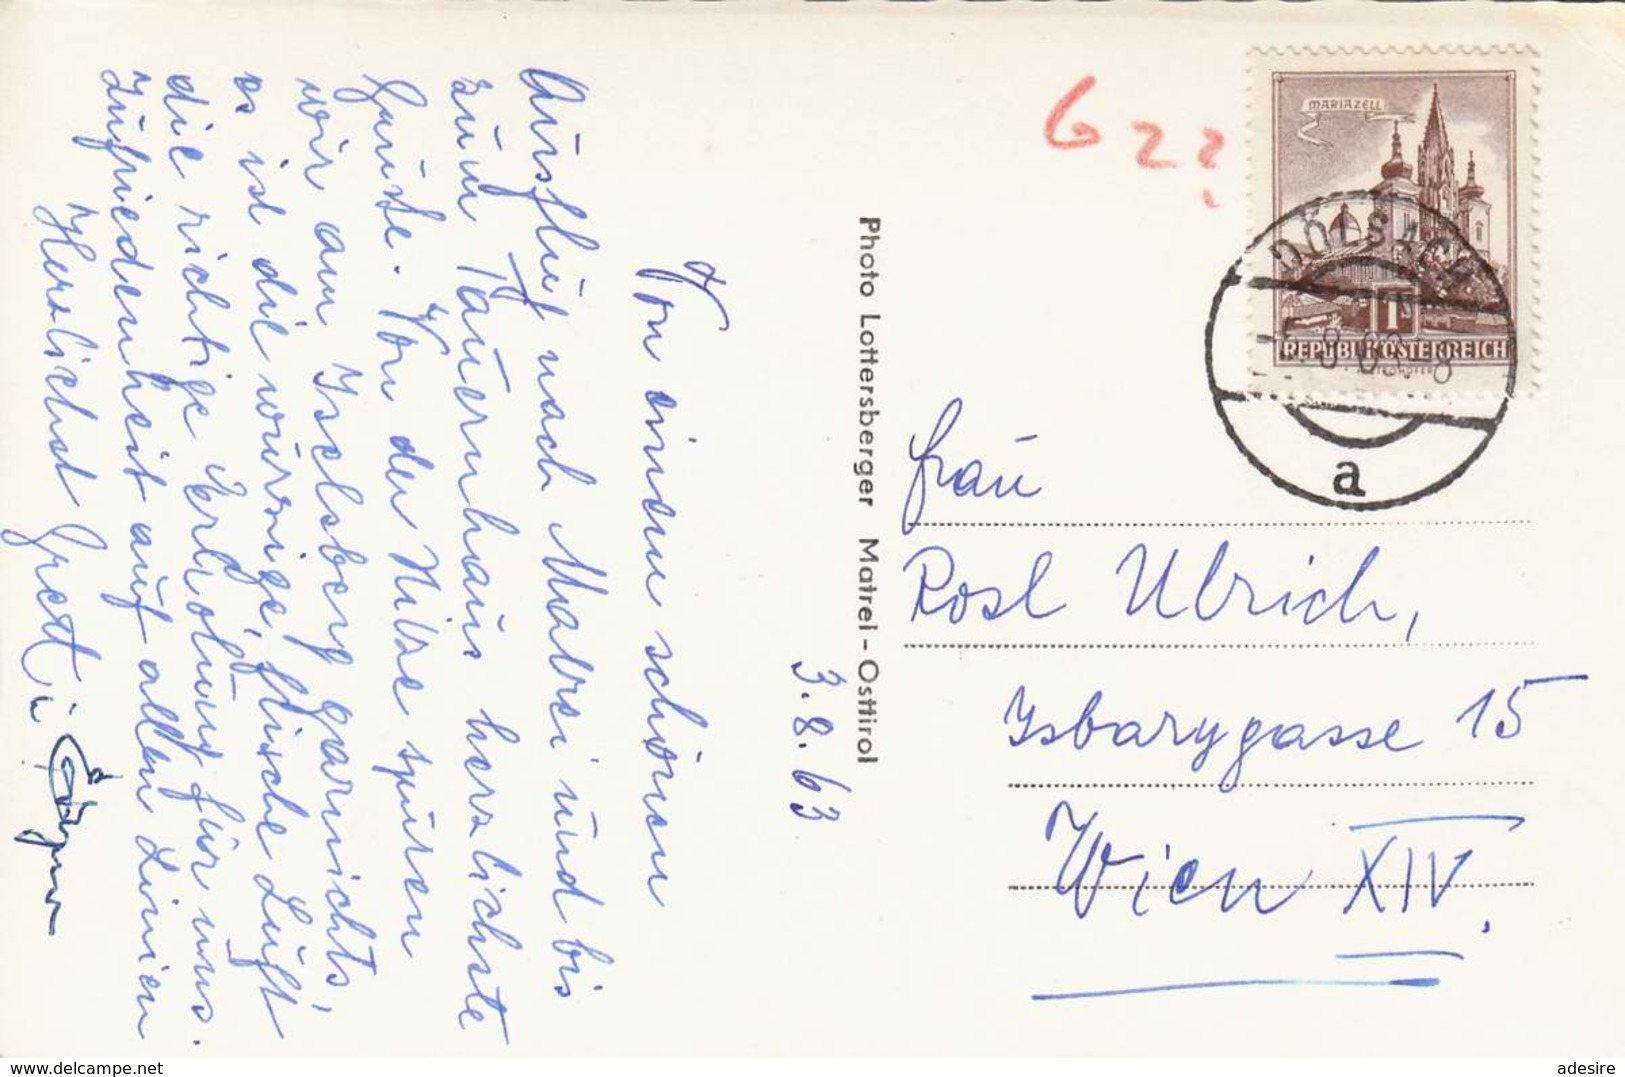 3.8.63
Von einem schönen
Ausflug nach Matrei und bis
zum Tauernhaus herzlichste
Grüße. Von der Hitze spüren
wir am Iselsberg garnichts,
es ist die würzige, frische Luft
die richtige Erholung für uns.
Zufriedenheit auf allen Linien
Herzlichst Gretl i
Photo Lottersberger Matrei-Osttirol
622
MARIAZELL
1
REPUBLIK ÖSTERREICH
DÖLSACH
8.63.-8
a
Frau
Rosl Ulrich,
Isbarygasse 15
Wien XIV.
delcampe.net
adesire